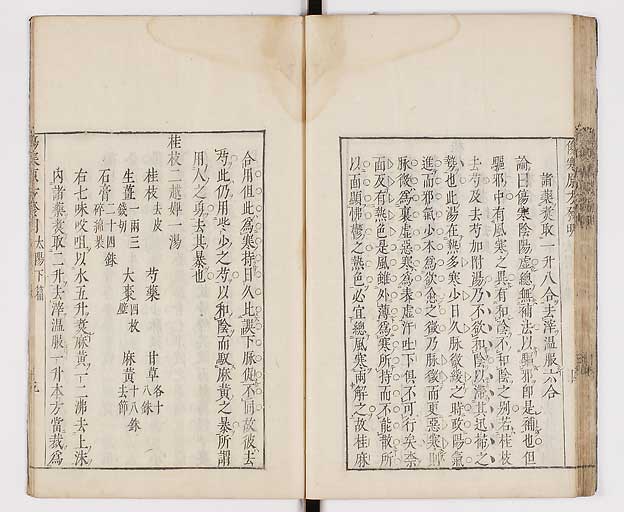 諸藥煑取一升八合去滓温服六合
論曰傷寒陰陽虛總無補法以驅邪即是補也但
驅邪中有風寒之異有和陰不和陰之别若桂枝
去芍及去芍加附湯乃不欲和陰以滯其迅掃之
勢也此湯在熱多寒少日久脉微緩之時故陽氣
進而邪氣少本爲欲愈之徵乃脉微而更惡寒則
脉微爲裏虛惡寒爲表虛汗吐下俱不可行矣奈
面反有熱色是風雖外薄爲寒所持而不能散所
以面顯怫鬱之熱色必宜總風寒兩解之故桂麻
合用但此爲寒持日久比誤下脉促不同故彼去
芍此仍用些少之芍以和陰而取麻黄之暴所謂
用人之勇去其暴也
桂枝二越婢一湯
桂枝 去皮 芍藥 甘草 各十八銖
生薑 一兩三錢切 大棗 四枚 擘 麻黄 十八銖去節
石膏 二十四銖 碎綿裹
右七味咬咀以水五升煑麻黄一二沸去上沫
内諸藥煑取二升去滓温服一升本方當裁爲
傷寒原方發明
太陽下篇